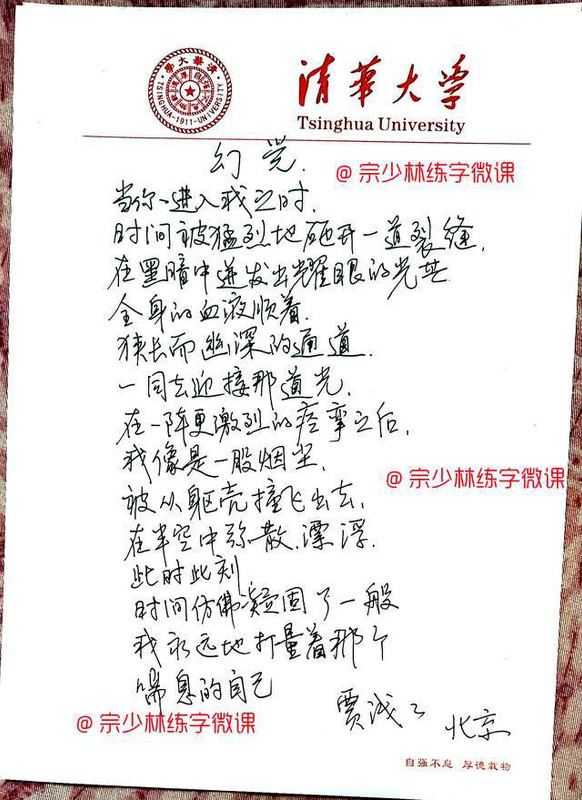 清華大學
TSINGHUA-1911-UNIVERSITY
清華大学
Tsinghua University
幻觉.
@宗少林练字微课
当你进入我之时,
时间被猛烈地砸开一道裂缝,
在黑暗中迸发出耀眼的光芒
全身的血液顺着
狭长而幽深的通道
一同去迎接那道光,
在一阵更激烈的痉挛之后,
我像是一股烟尘,
@宗少林练字微课
被从躯壳撞飞出去,
在半空中弥散、漂浮.
此时此刻
时间仿佛凝固了一般
我永远地打量着那个
喘息的自己
@宗少林练字微课
贾浅浅 北京
自强不息 厚德载物